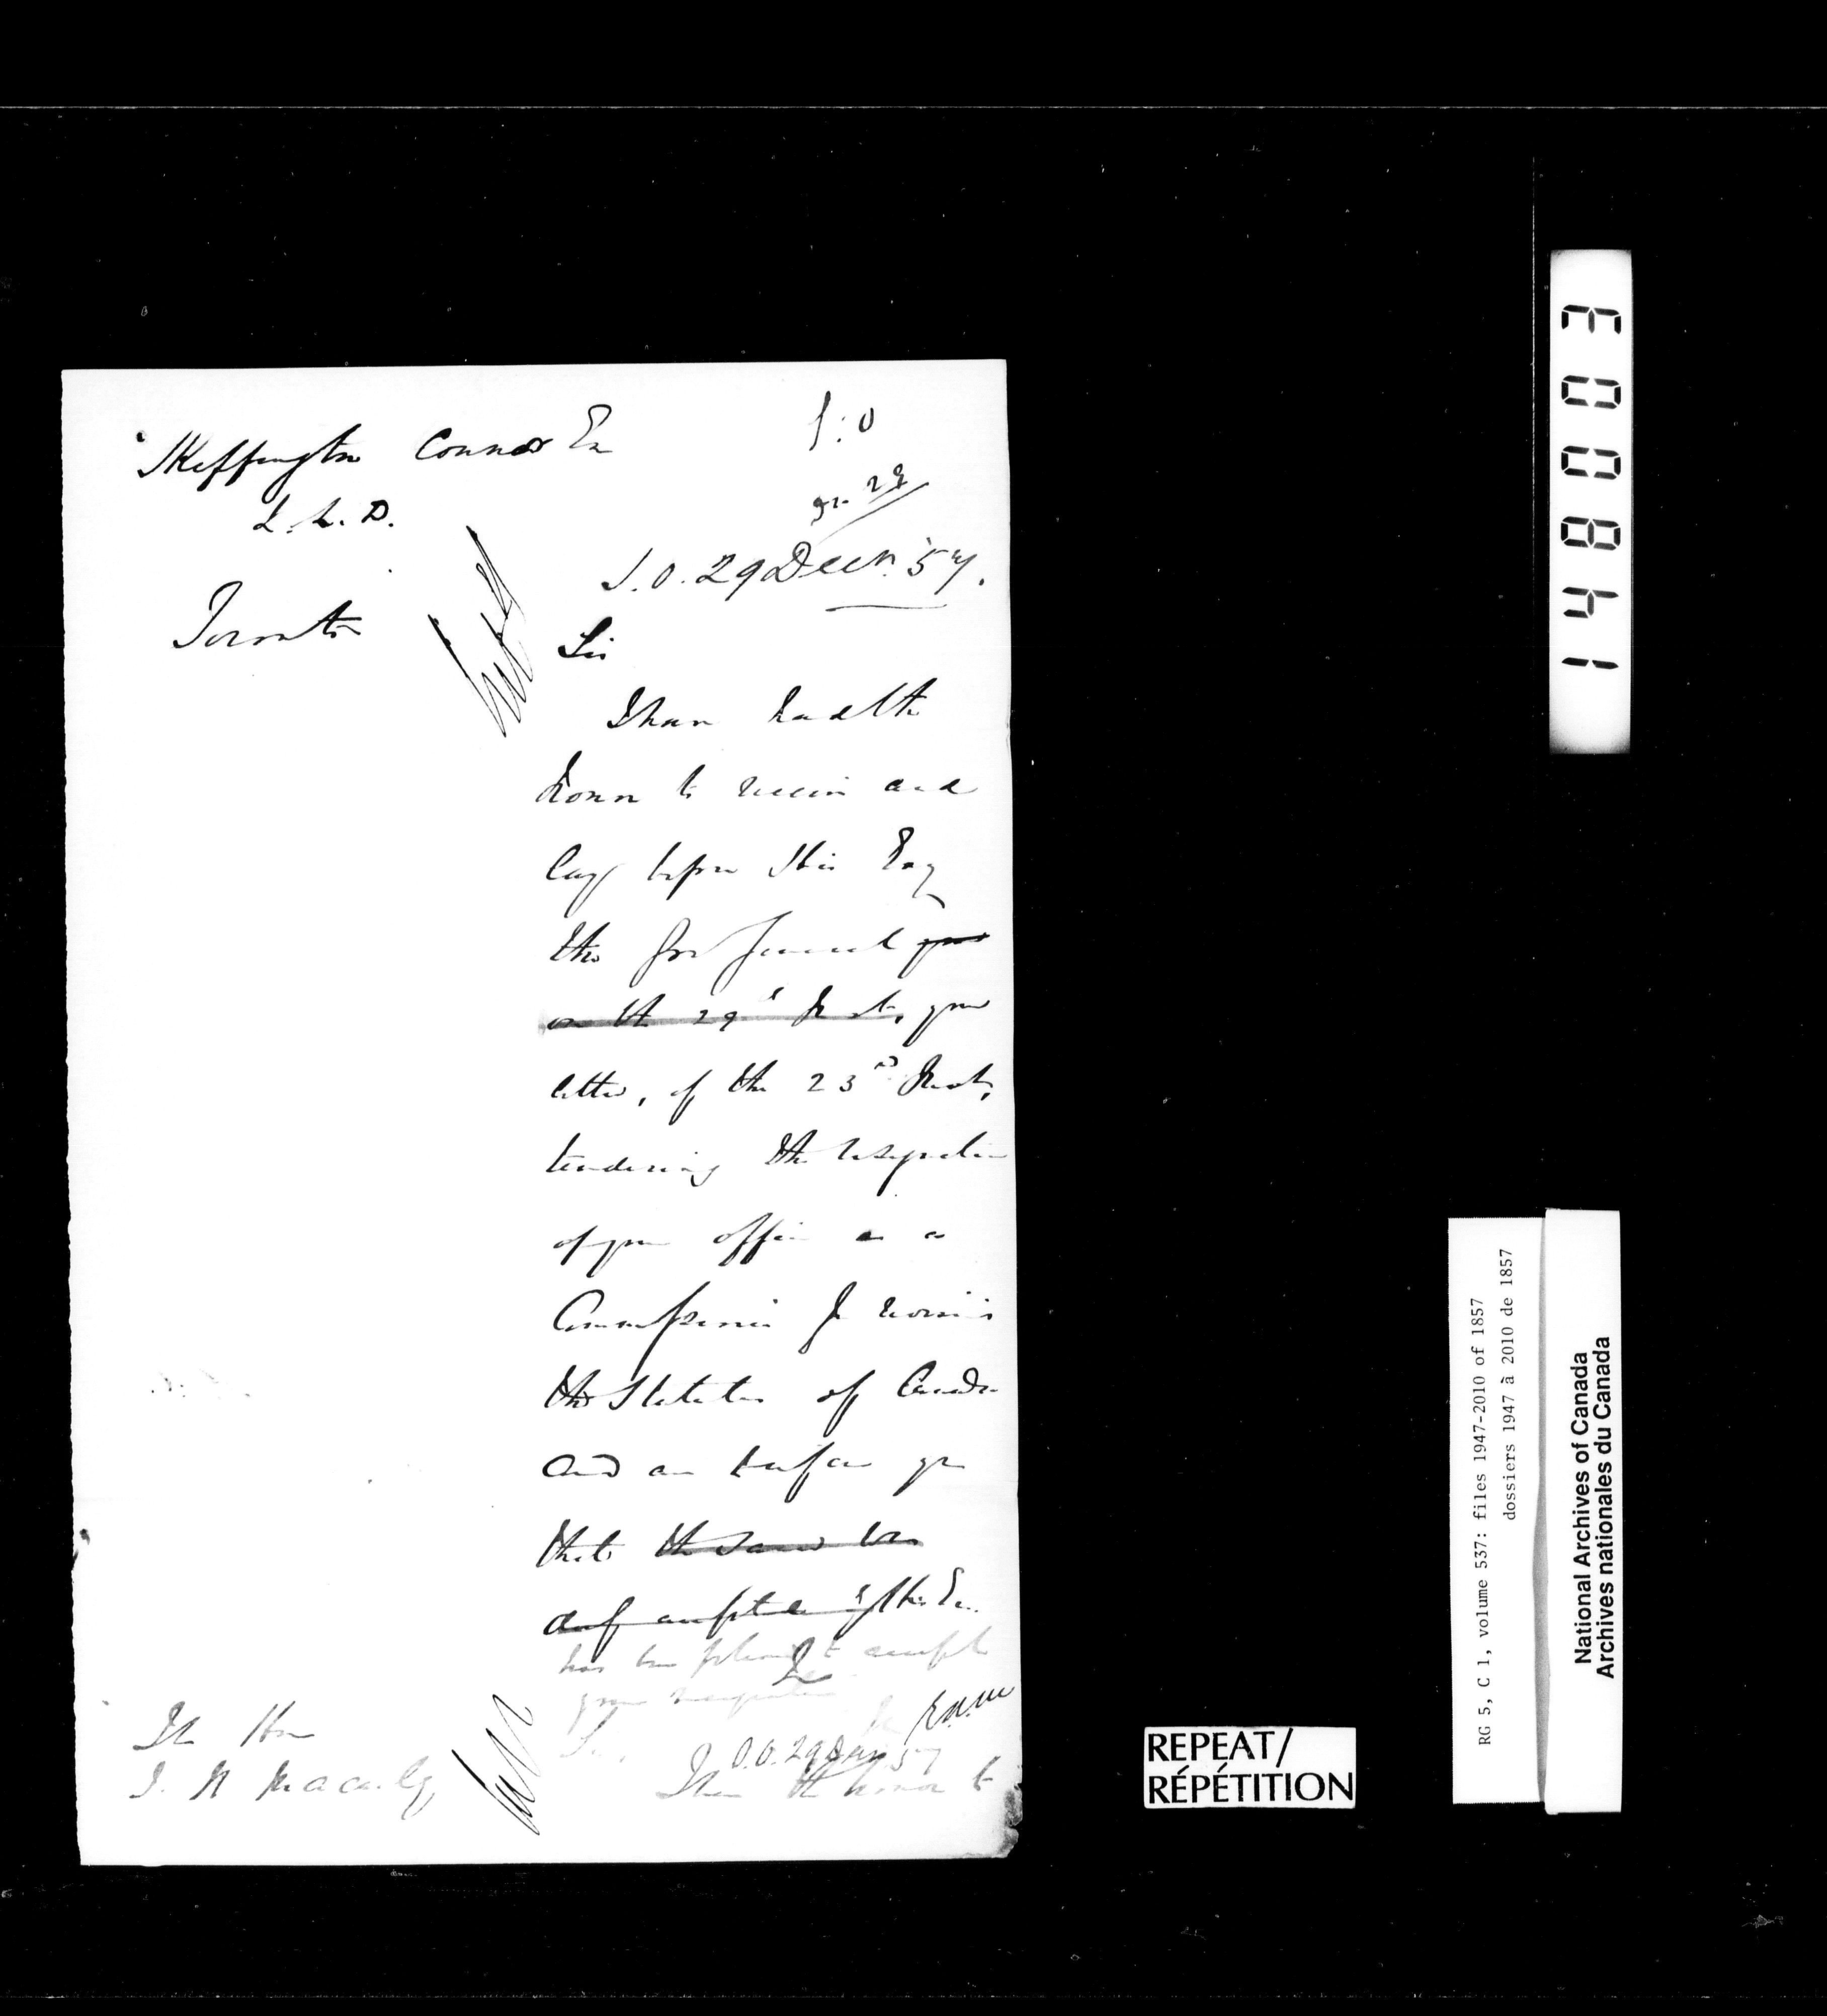 Skeffington Connor Esq
L.L.D.
Toronto
S.O. 29 Decr. '57.
Sir
I have had the
honor to receive and
lay before His Exy
the Gov General your
on the 29th Inst, your
letter, of the 23rd Inst,
tendering the resignation
of your office as a
Commissioner for revising
the Statutes of Canada
and am to inform you
that the same has
acceptance of His Ex.
has been pleased to accept
your resignation
I
The Hon
S.O. 29 Decr. 57
I have the honor to
RG 5, C 1, volume 537: files 1947-2010 of 1857
dossiers 1947 à 2010 de 1857
National Archives of Canada
Archives nationales du Canada
REPEAT/
RÉPÉTITION